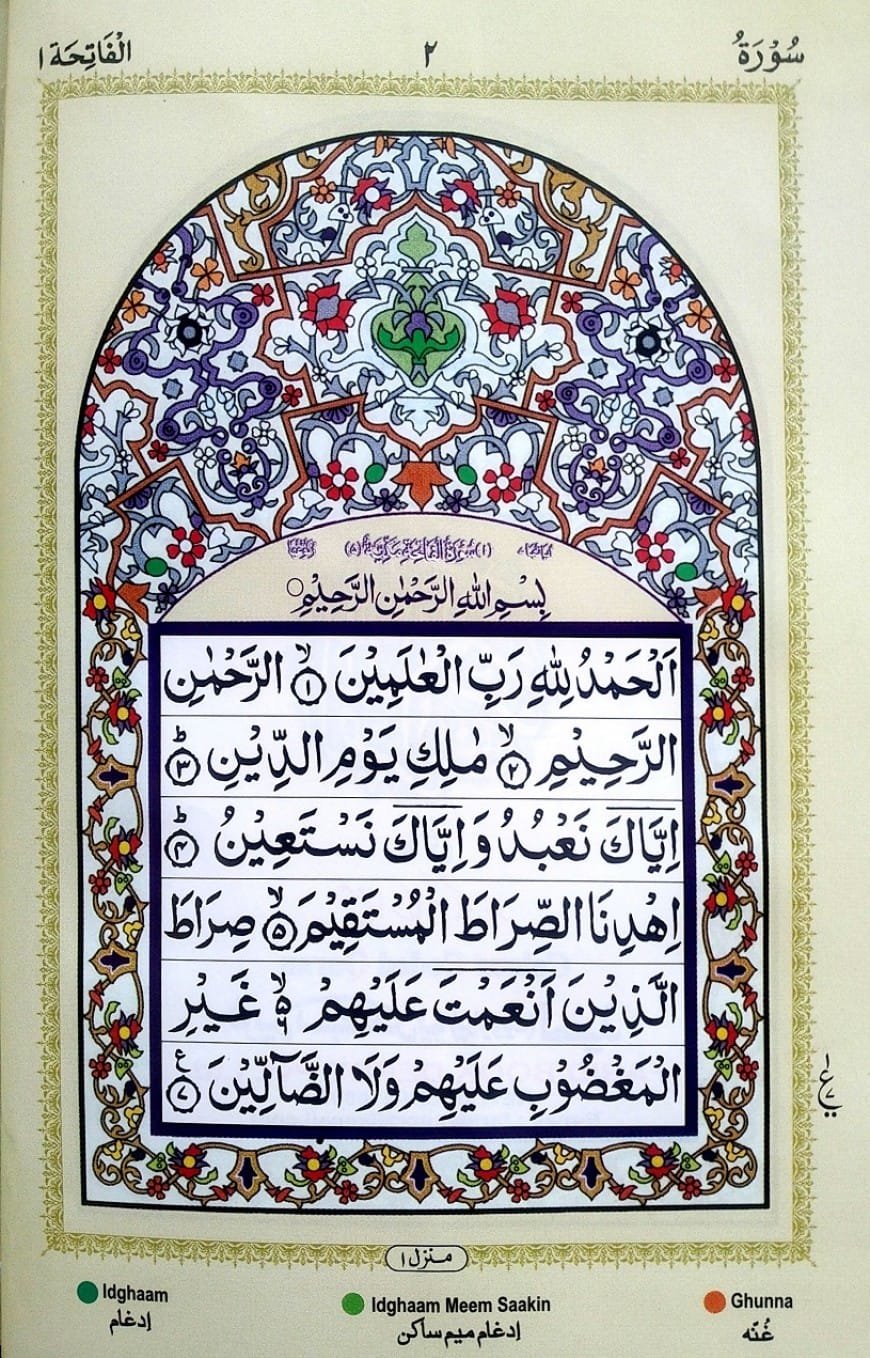 سُوْرَةُ ٢ الْفَاتِحَة ١
(١) سُوْرَةُ الْفَاتِحَةِ مَكِّيَّةٌ (٥)
بِسْمِ اللهِ الرَّحْمٰنِ الرَّحِيْمِ
اَلْحَمْدُ لِلّٰهِ رَبِّ الْعٰلَمِيْنَ ۙ ١ الرَّحْمٰنِ
الرَّحِيْمِ ۙ ٢ مٰلِكِ يَوْمِ الدِّيْنِ ؕ ٣
اِيَّاكَ نَعْبُدُ وَاِيَّاكَ نَسْتَعِيْنُ ؕ ٤
اِهْدِنَا الصِّرَاطَ الْمُسْتَقِيْمَ ۙ ٥ صِرَاطَ
الَّذِيْنَ اَنْعَمْتَ عَلَيْهِمْ ۙ ٥ ٦ غَيْرِ
الْمَغْضُوْبِ عَلَيْهِمْ وَلَا الضَّآلِّيْنَ ع ٧
منزل ١
Idghaam
إدغام
Idghaam Meem Saakin
إدغام ميم ساكن
Ghunna
غُنّه